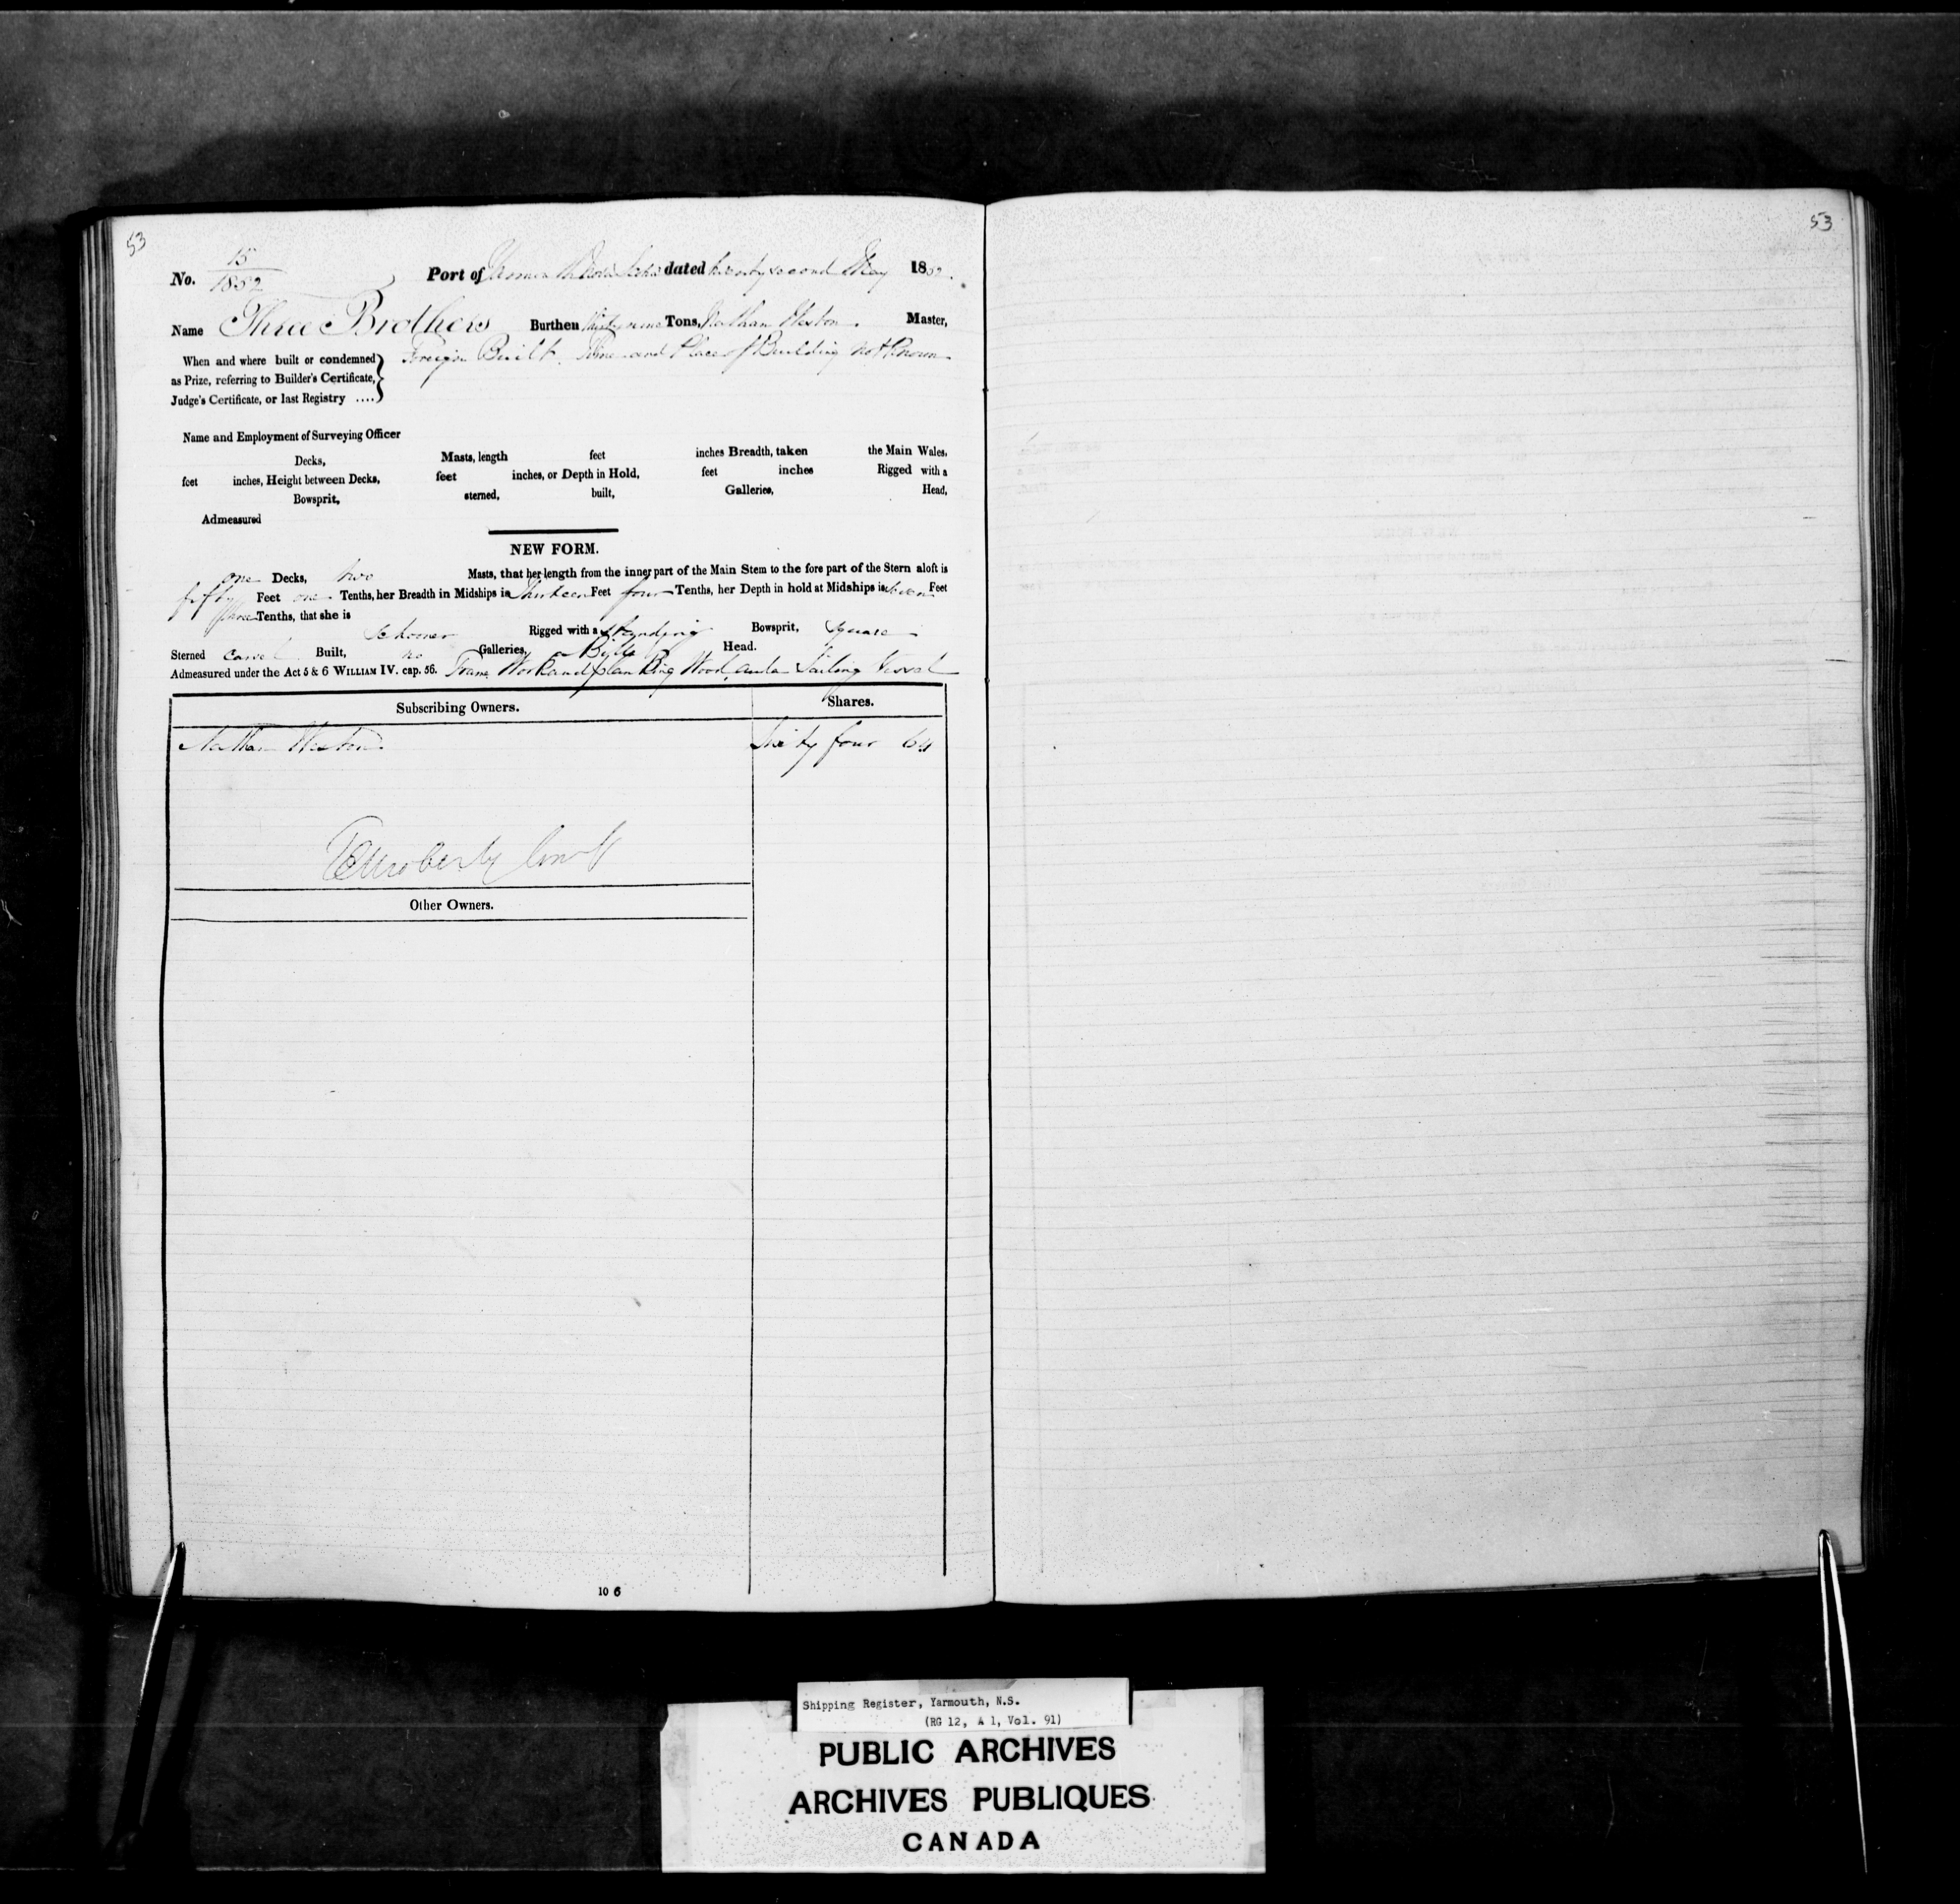 53
53
No. 15/1852 Port of Yarmouth Nova Scotia dated twenty second May 1852.
Name Three Brothers Burthen Thirty nine Tons, Nathan Weston. Master,
When and where built or condemned Foreign Built. Time and Place of Building not Known
as Prize, referring to Builder's Certificate,
Judge's Certificate, or last Registry ....
Name and Employment of Surveying Officer
Decks, Masts, length feet inches Breadth, taken the Main Wales,
feet inches, Height between Decks, feet inches, or Depth in Hold, feet inches Rigged with a
Bowsprit, sterned, built, Galleries, Head,
Admeasured
NEW FORM.
one Decks, two Masts, that her length from the inner part of the Main Stem to the fore part of the Stern aloft is
fifty Feet one Tenths, her Breadth in Midships is Thirteen Feet four Tenths, her Depth in hold at Midships is Feet
Tenths, that she is
Schooner Rigged with a Standing Bowsprit, Square
Sterned Carvel Built, no Galleries, Head.
Admeasured under the Act 5 & 6 WILLIAM IV. cap. 56. Frame Work and planking Wood, and a Sailing Vessel
Subscribing Owners. Shares.
Nathan Weston Sixty four 64
Other Owners.
10 6
Shipping Register, Yarmouth, N.S.
(RG 12, A 1, Vol. 91)
PUBLIC ARCHIVES
ARCHIVES PUBLIQUES
CANADA